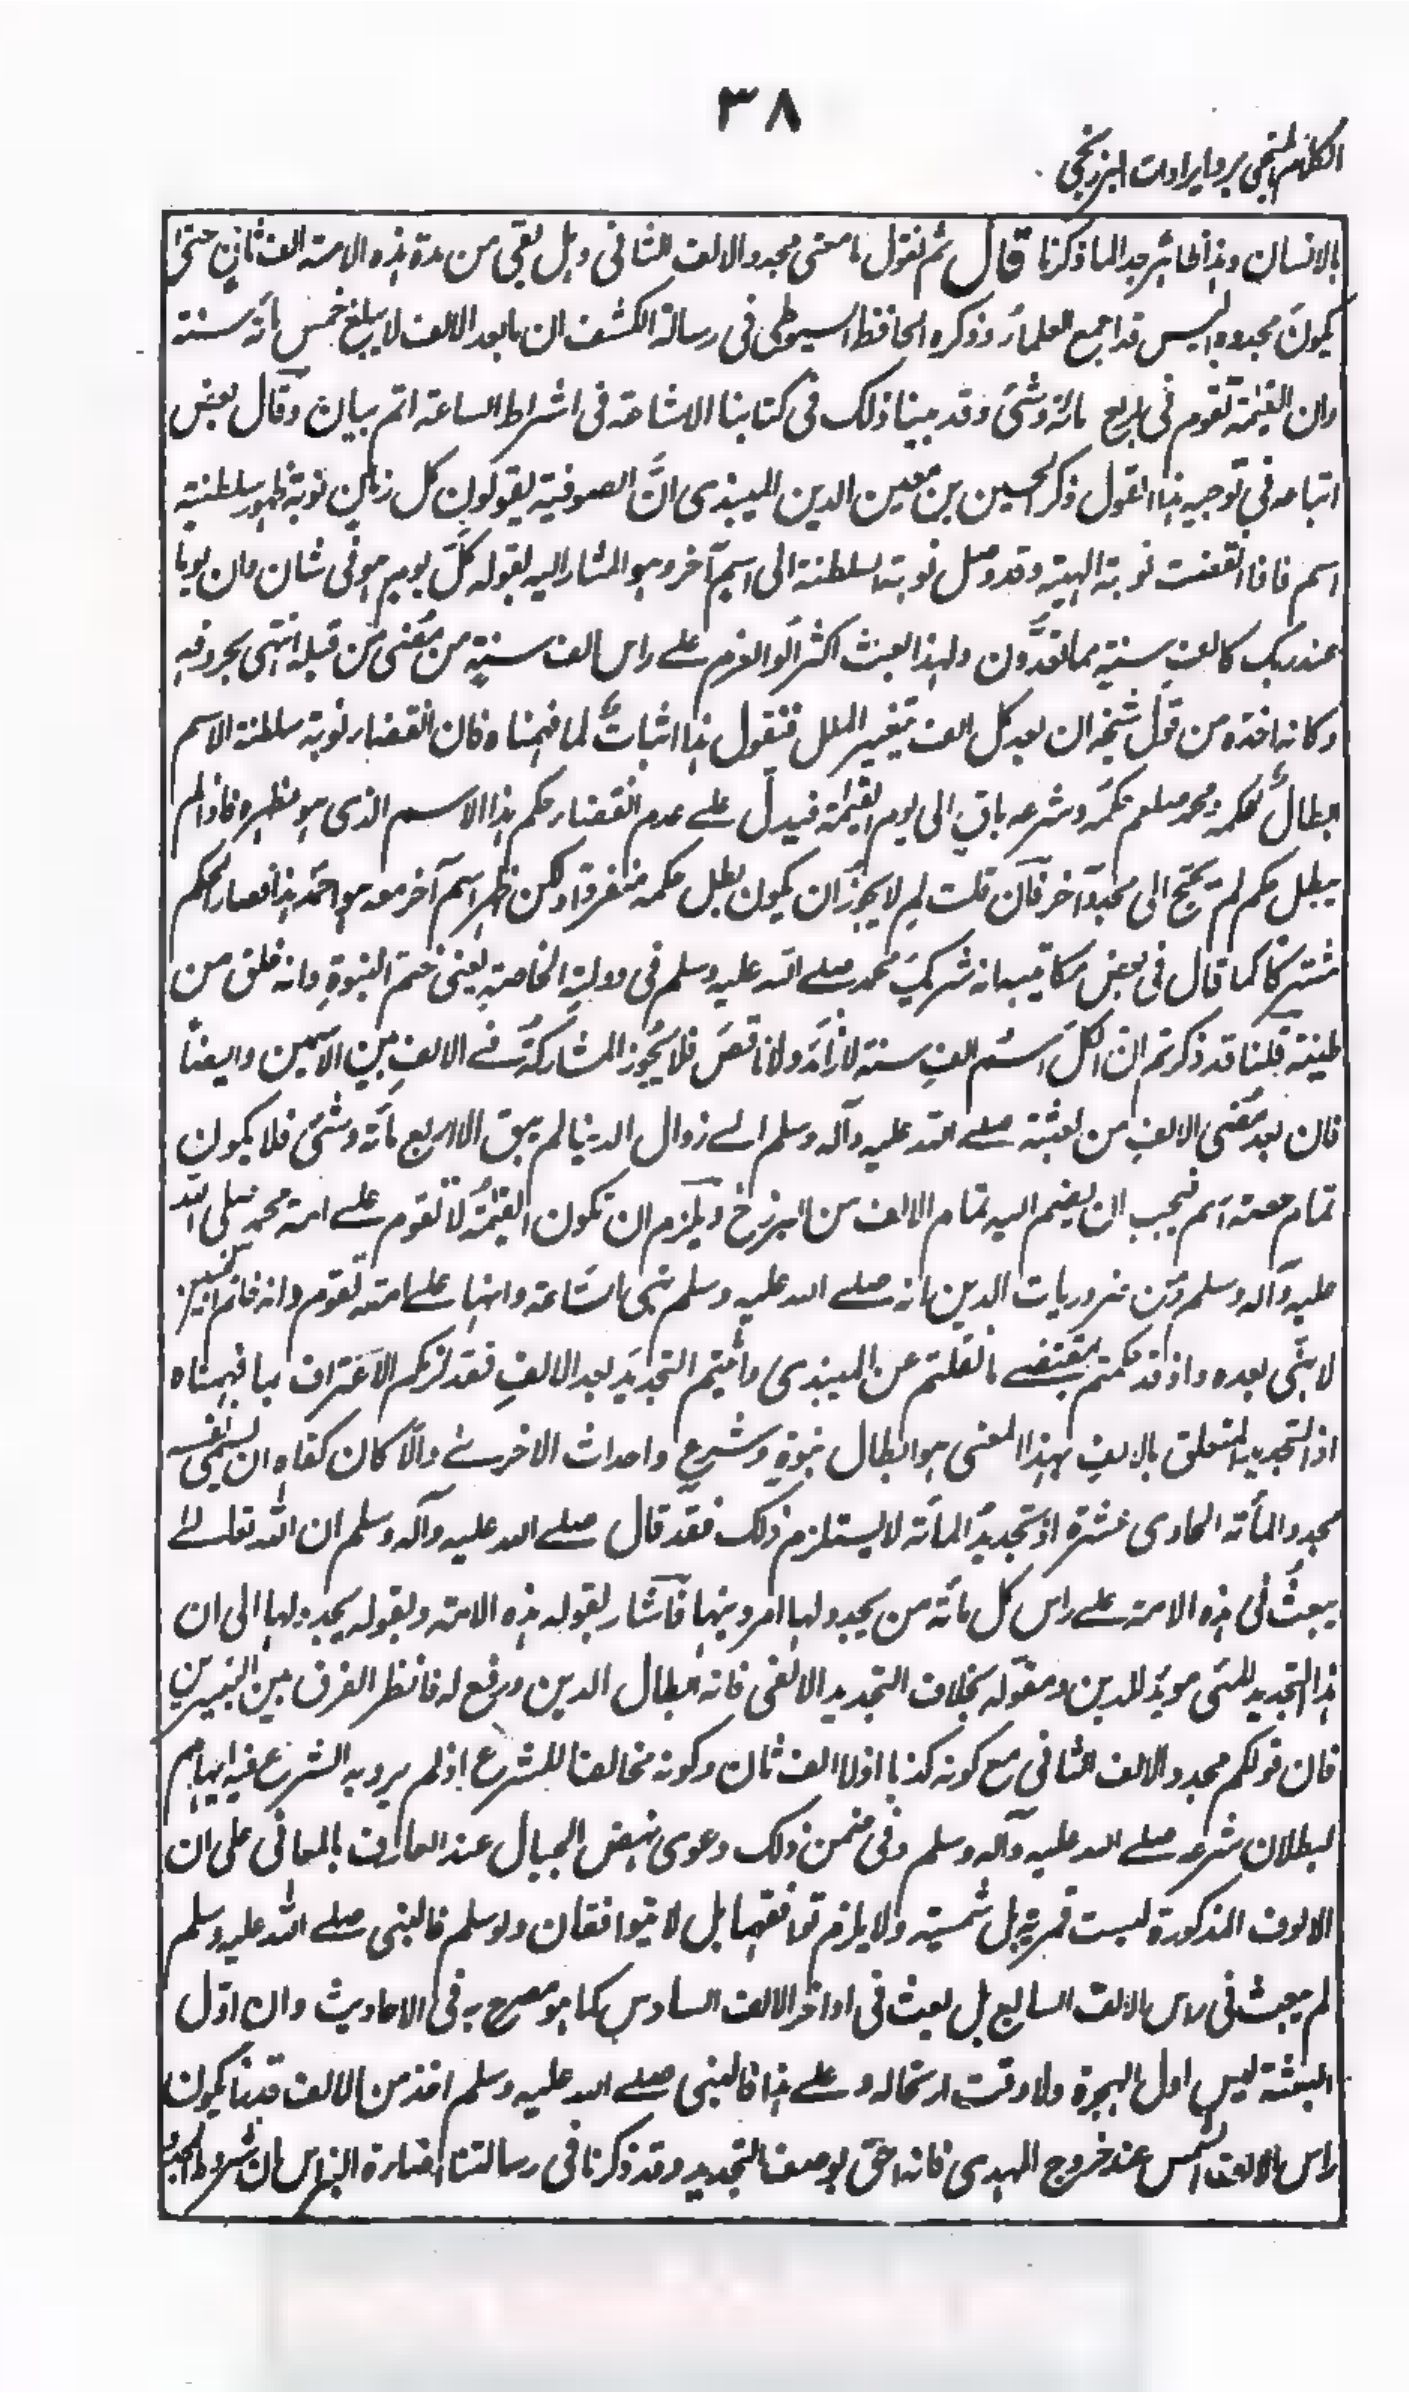 ٣٨
الكلام المنجى برد ايرادات البرزنجى
بالانسان وهذا ظاهر جدا لما ذكرنا قال ثم نقول ما معنى مجدد الالف الثانى وهل بقى من مدة هذه الامة الف ثانٍ حتى
يكونَ مجدده اليس قد اجمع العلماء وذكره الحافظ السيوطى فى رسالة الكشف ان ما بعد الالف لا يبلغ خمس مائة سنة
وان القيٰمة تقوم فى اربع مائة وشئ وقد بينا ذلك فى كتابنا الاشاعة فى اشراط الساعة اتم بيان وقال بعض
اتباعه فى توجيه هذا القول ذكر الحسين بن معين الدين الميبذى انَّ الصوفية يقولون كل زمان نوبة ظهور سلطنة
اسم فاذا انقضت نوبة الهيته وقد وصل نوبة السلطنة الى اسم آخر وهو المشار اليه بقوله كلَّ يومٍ هو فى شان وان يوما
عند ربك كالف سنةٍ مما تعدّون ولهذا بعث اكثر الوالعزم على راس الف سنةٍ من مضى من قبله انتهى بحروفه
وكانه اخذه من قول شيخه ان بعد كل الف تتغير الملل فنقول هذا اثباتٌ لما فهمناه فان انقضاء نوبة سلطنة الاسم
ابطالٌ لحكمه ومحمد صلعم حكمه وشرعه باقٍ الى يوم القيٰمة فيدل على عدم انقضاء حكم هذا الاسم الذى هو مظهره فاذا لم
يبطل حكمه لم يحتج الى مجدد آخر فآن قلت لِم لا يجوز ان يكون بطل حكمه منفردا ولكن ظهر اسم آخر معه هو احمد هذا فصار الحكم
مشتركا كما قال فى بعض مكاتيبه انه شريك محمد صلى الله عليه وسلم فى دولته الخاصة يعنى ختم النبوة وانه خلق من
طينته قلنا قد ذكرتم ان لكل اسم الف سنة لا زائد ولا ناقص فلا يجوز المشاركة فى الالف بين الاسمين وايضاً
فان بعد مضى الالف من بعثته صلى الله عليه وآله وسلم الى زوال الدنيا لم يبق الا اربع مائة وشئ فلا يكون
تمام حصة اسم فيجب ان يضم اليه تمام الالف من البرزخ ويلزم ان تكون القيٰمة لا تقوم على امة محمد صلى الله
عليه وآله وسلم ومن ضروريات الدين انه صلى الله عليه وسلم نبى الساعة وانها على امته تقوم وانه خاتم النبيين
لا نبى بعده واذ قد حكمتم بمقتضى ما نقلتم عن الميبذى واثبتم التجديد بعد الالف فقد لزمكم الاعتراف بما فهمناه
اذ التجديد المتعلق بالالف بهذا المعنى هو ابطال نبوة وشرع واحداث الاخرى والا كان كفاه ان يسمى نفسه
مجدد المأة الحادى عشرة اذ تجديد المأة لا يستلزم ذلك فقد قال صلى الله عليه وآله وسلم ان الله تعالى
يبعث فى هذه الامة على راس كل مائة من يجدد لها امر دينها فآشار بقوله هذه الامة وبقوله يجدد لها الى ان
هذا التجديد المئى مويد للدين ومقوّله بخلاف التجديد الالفى فانه ابطال الدين ورفع له فانظر الفرق بين التعبيرين
فان قولكم مجدد الالف الثانى مع كونه كذبا اذ لا الف ثان وكونه مخالفا للشرع اذ لم يرد به الشرع فيه ايهام
لبطلان شرعه صلى الله عليه وآله وسلم وفى ضمن ذلك دعوى تنهض الجبال عند العارف بالمعانى على ان
الالوف المذكورة ليست قمرية بل شمسية ولا يلزم توافقهما بل لا يتوافقان ولو سلم فالنبى صلى الله عليه وسلم
لم يبعث فى راس الالف السابع بل بعث فى اواخر الالف السادس كما هو مصرح به فى الاحاديث وان اوّل
البعثة ليس اول الهجرة ولا وقت ارتحاله وعلى هذا فالنبى صلى الله عليه وسلم اخذ من الالف قدرا يكون
راس الالف عند خروج المهدى فانه احق بوصف التجديد وقد ذكرنا فى رسالتنا ان شروط